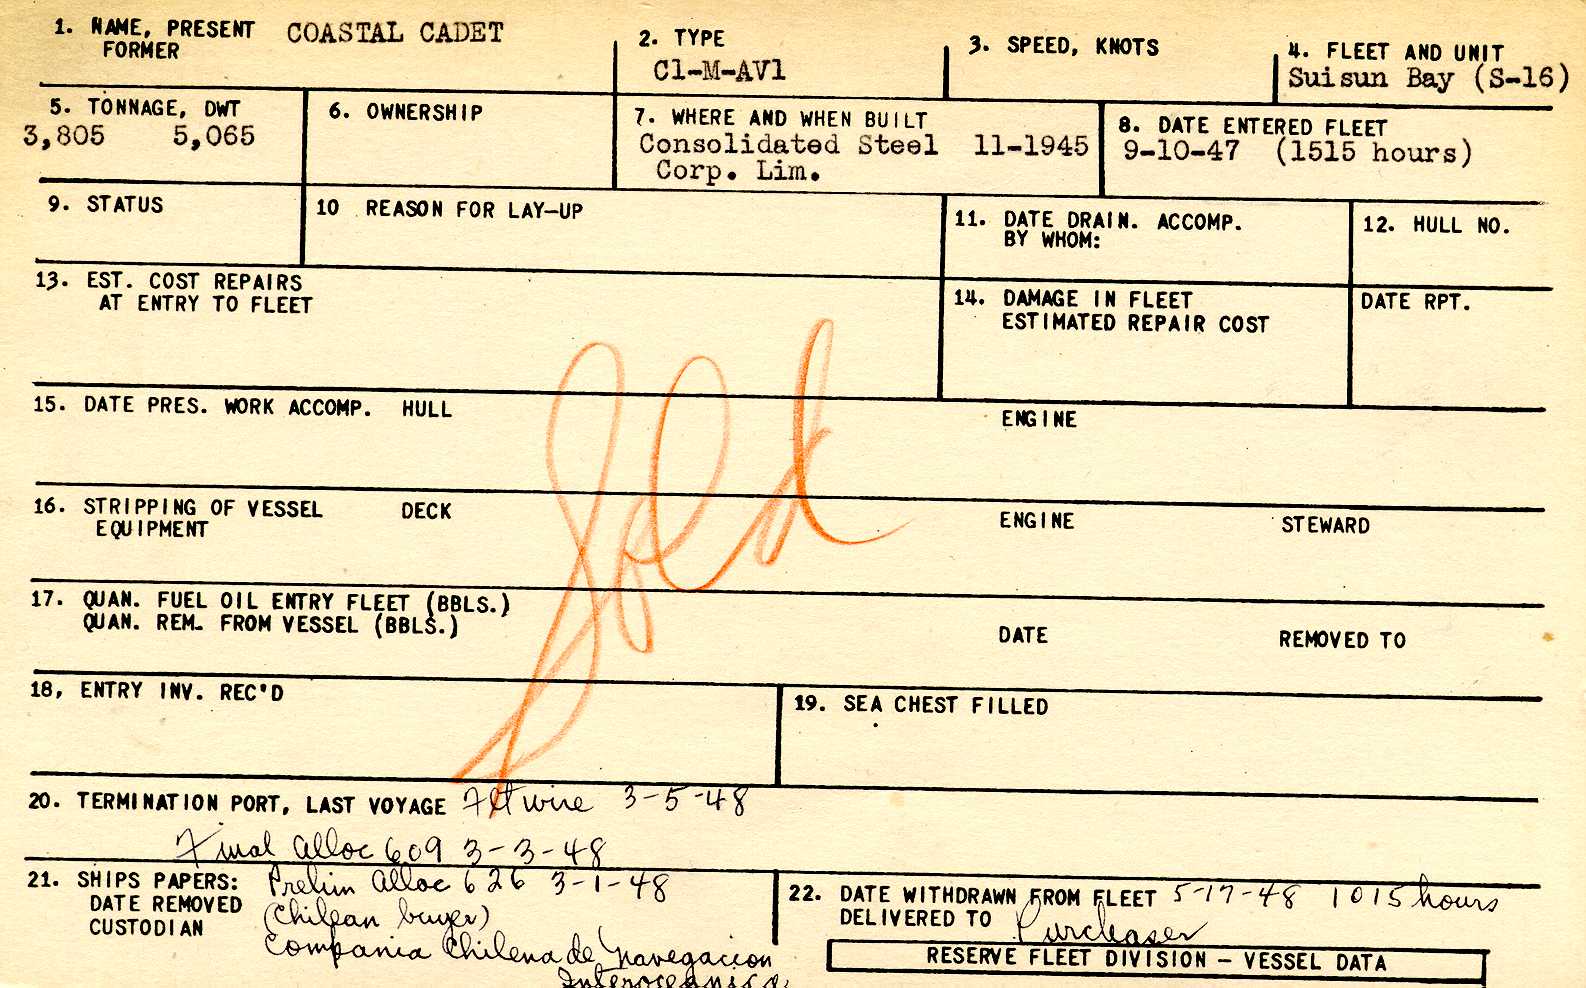 1. NAME, PRESENT COASTAL CADET
FORMER
2. TYPE
C1-M-AV1
3. SPEED, KNOTS
4. FLEET AND UNIT
Suisun Bay (S-16)
5. TONNAGE, DWT
3,805 5,065
6. OWNERSHIP
7. WHERE AND WHEN BUILT
Consolidated Steel 11-1945
Corp. Lim.
8. DATE ENTERED FLEET
9-10-47 (1515 hours)
9. STATUS
10 REASON FOR LAY-UP
11. DATE DRAIN. ACCOMP.
BY WHOM:
12. HULL NO.
13. EST. COST REPAIRS
AT ENTRY TO FLEET
14. DAMAGE IN FLEET
ESTIMATED REPAIR COST
DATE RPT.
Sold
15. DATE PRES. WORK ACCOMP. HULL ENGINE
16. STRIPPING OF VESSEL DECK ENGINE STEWARD
EQUIPMENT
17. QUAN. FUEL OIL ENTRY FLEET (BBLS.)
QUAN. REM. FROM VESSEL (BBLS.) DATE REMOVED TO
18, ENTRY INV. REC'D
19. SEA CHEST FILLED
20. TERMINATION PORT, LAST VOYAGE wire 3-5-48
Final Alloc 609 3-3-48
21. SHIPS PAPERS: Prelim Alloc 626 3-1-48
DATE REMOVED (Chilean buyer)
CUSTODIAN Compania Chilena de Navegacion
Interoceanica
22. DATE WITHDRAWN FROM FLEET 5-17-48 1015 hours
DELIVERED TO Purchaser
RESERVE FLEET DIVISION - VESSEL DATA